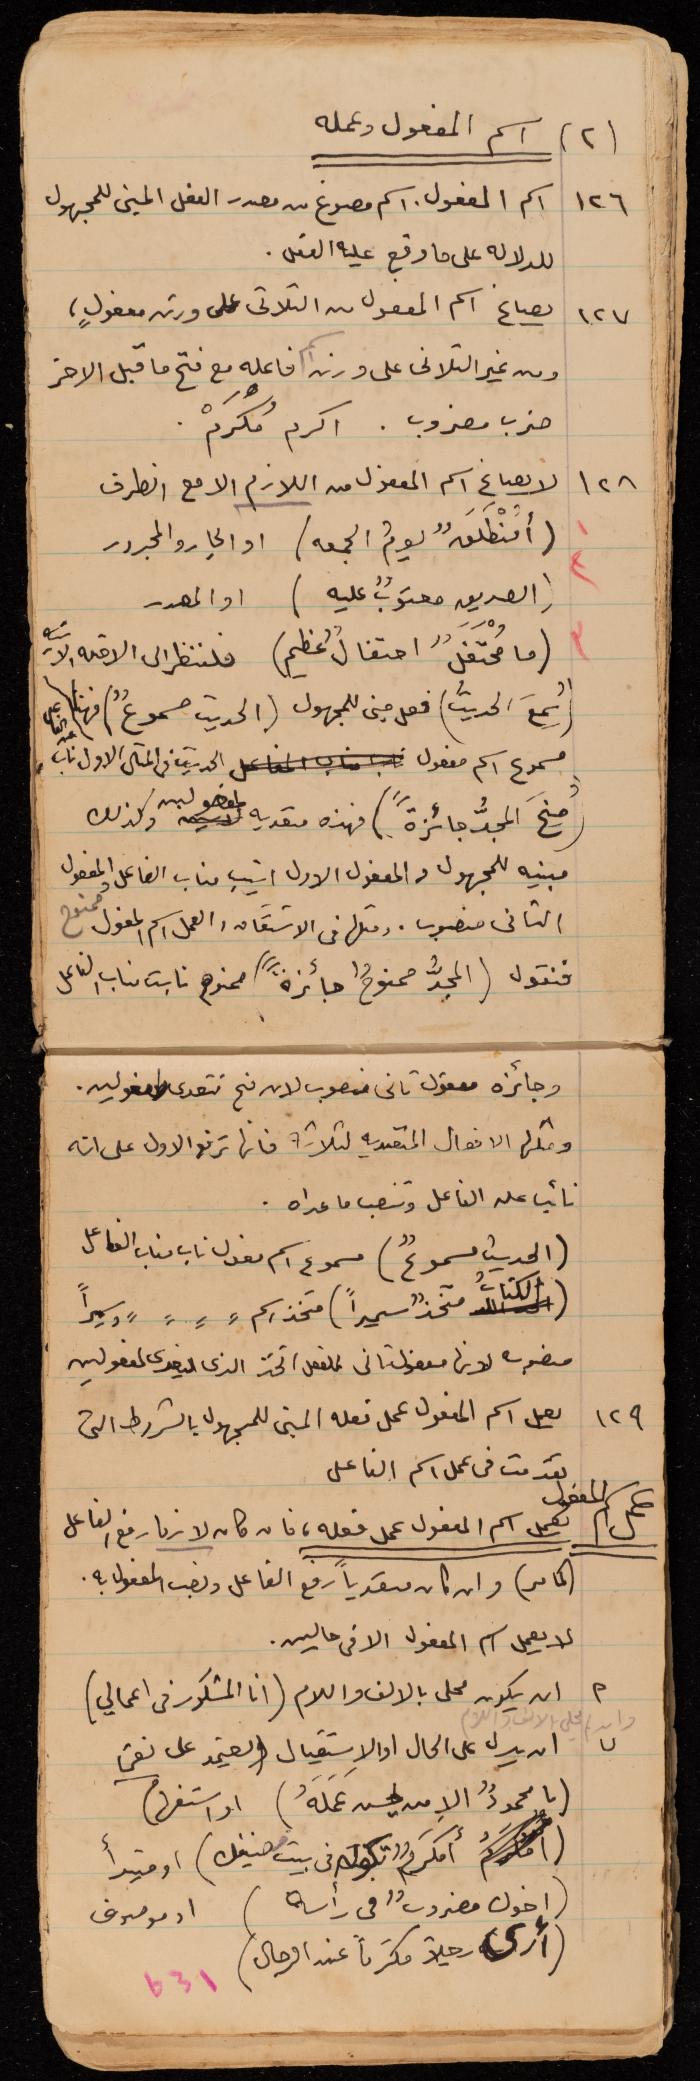 (٢) اسم المفعول وعمله
١٢٦ اسم المفعول. اسم مصوغ من مصدر الفعل المبنى للمجهول
للدلاله على ما وقع عليه الفعل.
١٢٧ يصاغ اسم المفعول من الثلاثى على وزن مفعولٍ،
ومن غير الثلاثى على وزن اسم فاعله مع فتح ما قبل الاخر
ضرب مضروب. اكرم مُكْرَمْ.
١٢٨ لا يصاغ اسم المفعول من اللازم الا مع الظرف
١ (أمُنْطَلَقٌ يومُ الجمعه) او الجار والمجرور
٢ (الصديق معتوبٌ عليه) او المصدر
٣ (ما مُحْتَفَلٌ احتفالٌ عظيم) فلننظر الى الامثله الآتيه
(سُمِعَ الحديثُ) فعل مبنى للمجهول (الحديث مسموعٌ) فهنا
مسموع اسم مفعول الحديث فى المثال الاول ناب عن الفاعل
(مُنِحَ المجدُّ جائزةً) فهذه متعديه لمفعولين وكذلك
مبنيه للمجهول والمفعول الاول انيب مناب الفاعل والمفعول
الثانى منصوب. ومثلها فى الاشتقاق والعمل اسم المفعول ممنوح
فنقول (المجدُّ ممنوحٌ جائزةً) ممنوح نابت مناب الفاعل
وجائزه مفعول ثانى منصوب لان منح تتعدى لمفعولين.
ومثلها الافعال المتعديه لثلاثة فانها ترفع الاول على انه
نائب عن الفاعل وتنصب ما عداه.
(الحديث مسموعٌ) مسموع اسم مفعول ناب مناب الفاعل
(الكتابُ متّخذٌ سميراً) متخذ اسم " " " " وسميراً
منصوب لانها مفعول ثانى للفعل اتخذ الذى يتعدى لمفعولين
١٢٩ يعمل اسم المفعول عمل فعله المبنى للمجهول بالشروط التى
تقدمت فى عمل اسم الفاعل
عمل اسم المفعول
يعمل اسم المفعول عمل فعله، فان كان لازما رفع الفاعل
وان كان متعدياً رفع الفاعل ونصب المفعول به.
لا يعمل اسم المفعول الا فى حالين.
٢ ان يكون محلى بالالف واللام (انا المشكور فى اعمالي)
وان لم يحلى بالالف واللام
ب ان يدل على الحال او الاستقبال ويعتمد على نفى
(ما محمودٌ الا من يحسن عَمَلَهُ) او استفهام
(أمُكرَمٌ فى بيت صديقك) او مبتدأ
(اخوك مضروبٌ فى رأسه) او موصوف
(أرى رجلاً مكرّماً عند الرجال)
٤٣١